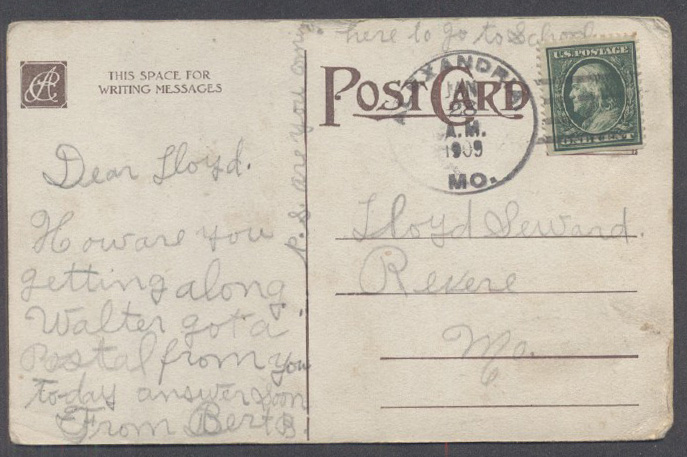 THIS SPACE FOR
WRITING MESSAGES
Dear Lloyd.
How are you
getting along
Walter got a
Postal from you
to-day answer soon
From Bert B.
P.S. are you
here to go to School
POST CARD
ALEXANDRIA
JAN
28
A.M.
1909
MO.
U.S. POSTAGE
ONE CENT
Lloyd Seward.
Revere
Mo.